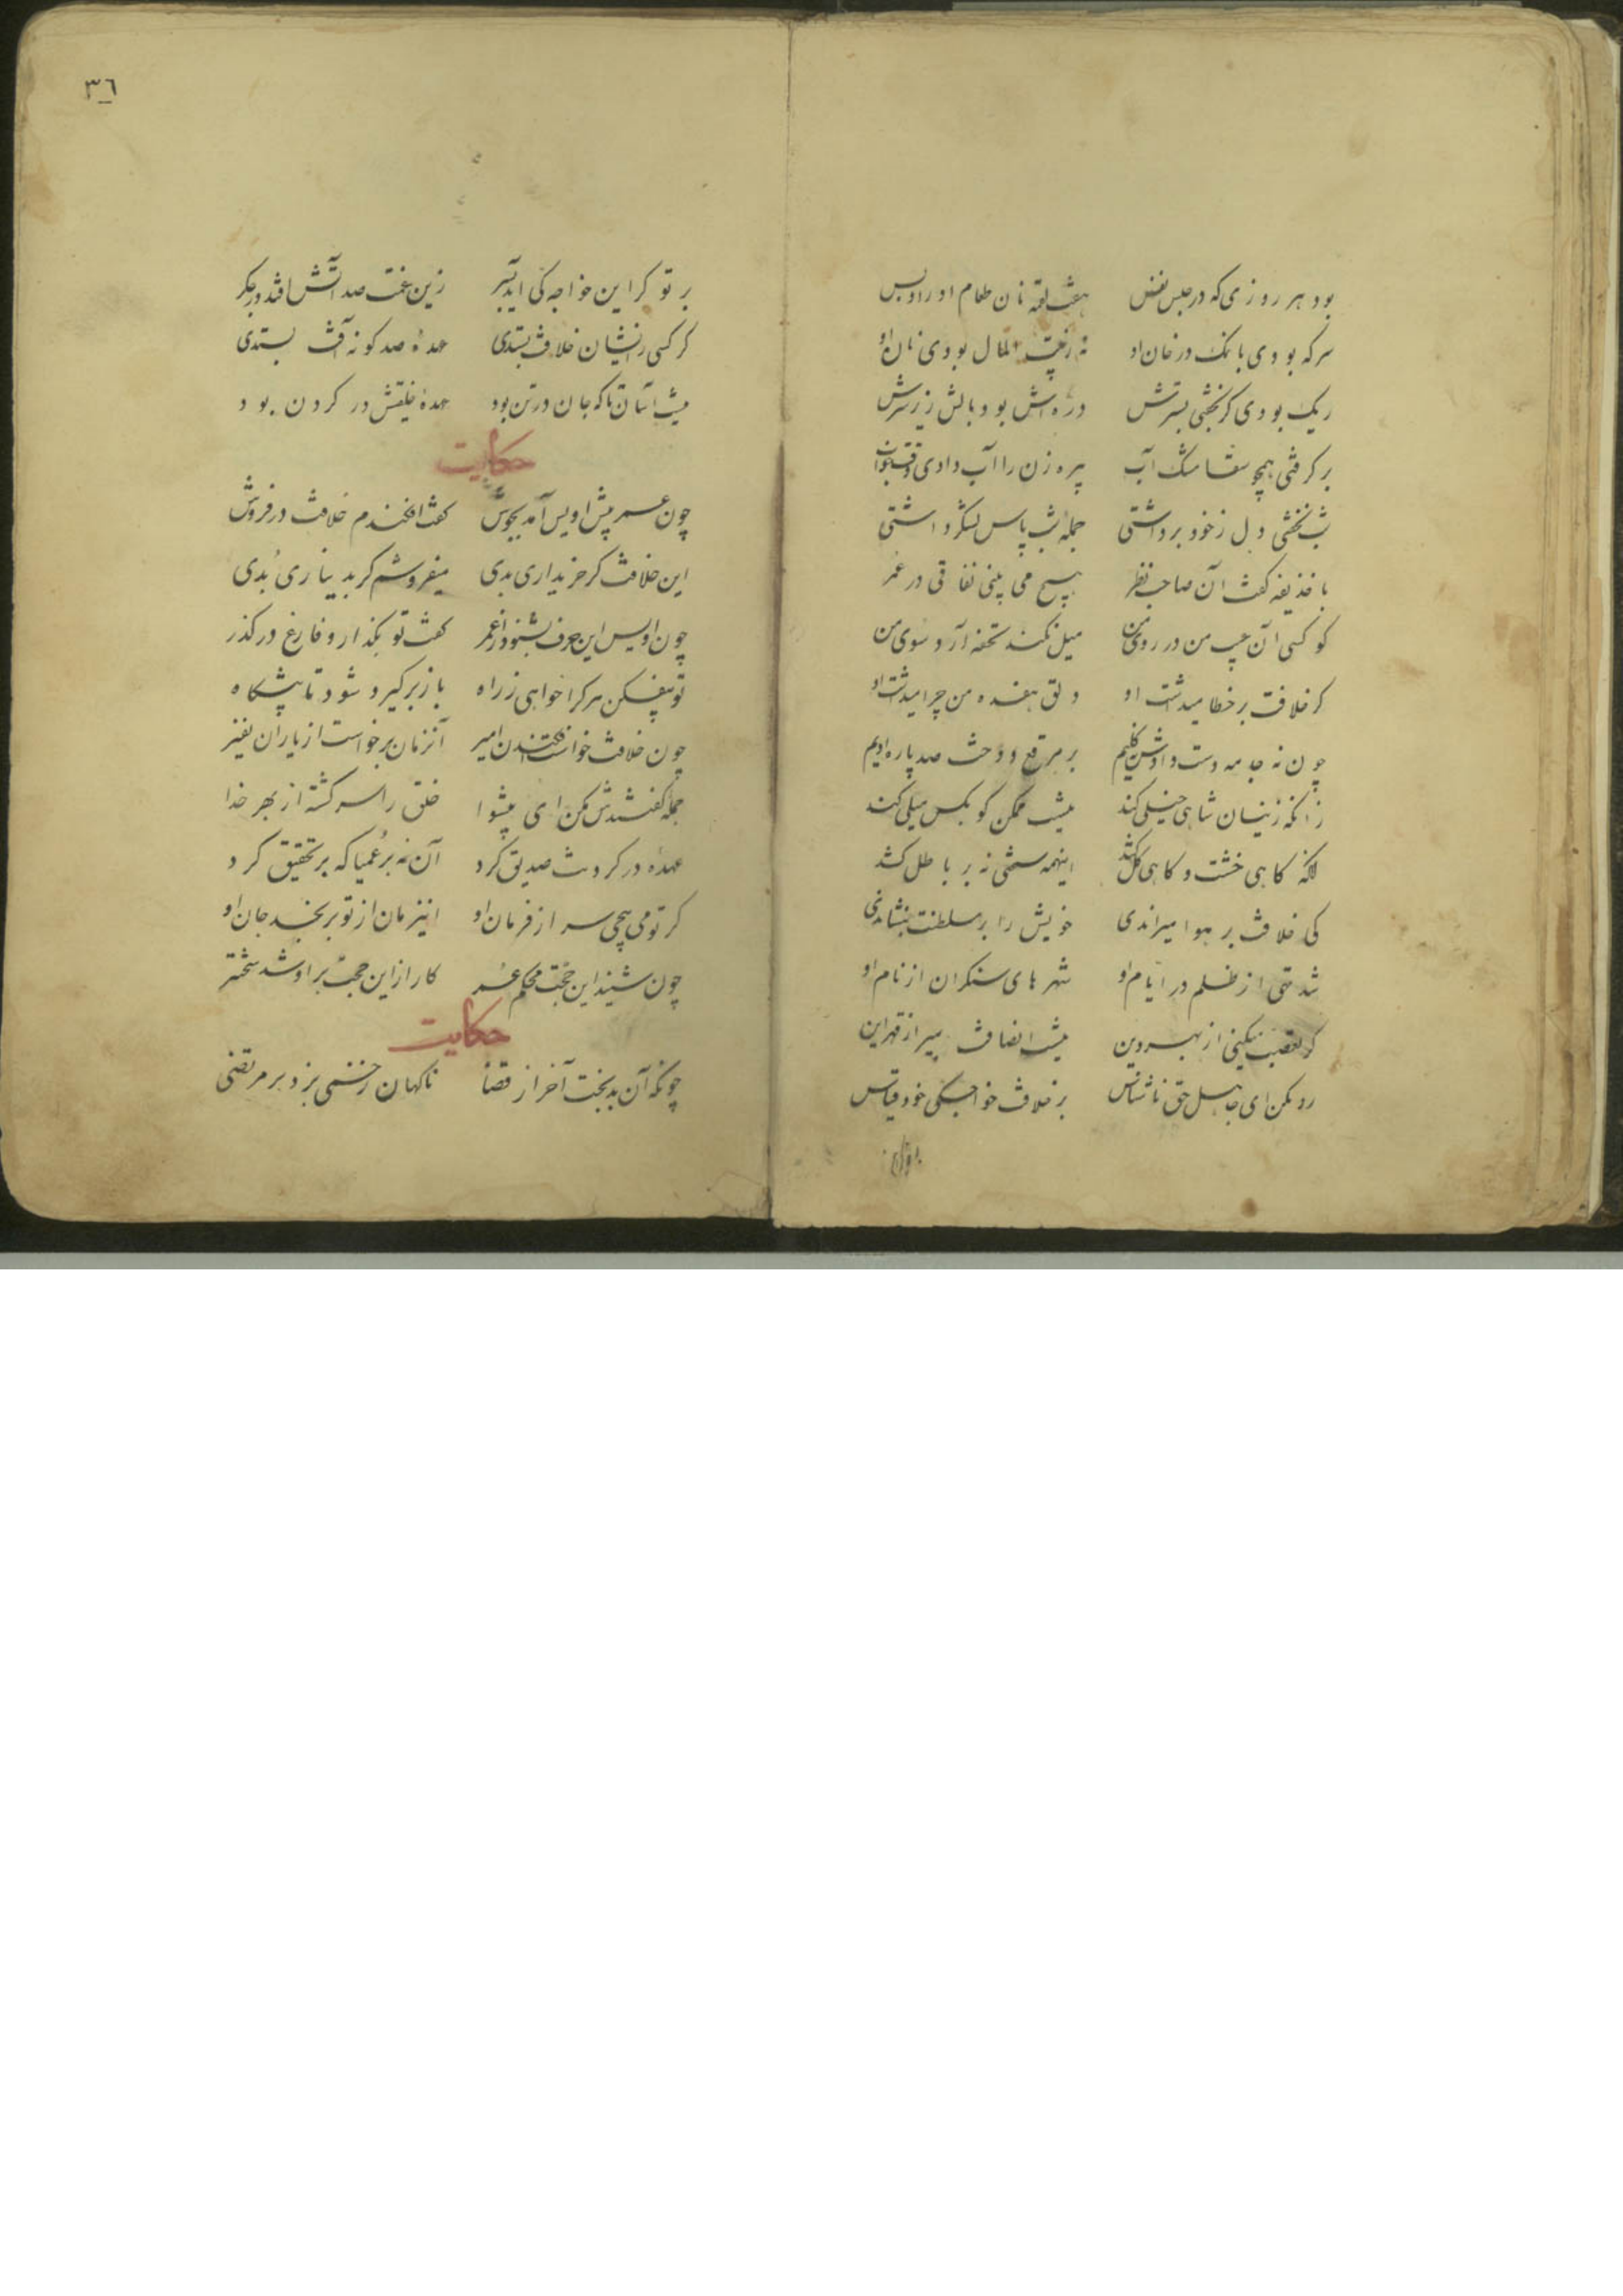 بود هر روزی که در حبس نفس هفت لقمه نان طعام او را و بس
سرکه بودی با نمک در خان او نه ز بیت المال بودی نان او
ریک بودی کر بخفتی بسترش دره اش بودی بالش زیر سرش
بر کرفتی همچو سقا مشک آب پیره زن را آب دادی وقت خواب
شب نخفتی دل ز خود برداشتی جمله شب پاس لشکر داشتی
با حذیفه کفت آن صاحب نظر هیچ می بینی نفاقی در عمر
کو کسی آن عیب من در روی من میل نکند تحفه آرد سوی من
کر خلافت بر خطا میداشت او دلق هفده من چرا میداشت او
چون نه جامه دست دادش نی کلیم بر مرقع دوخت صد پاره ادیم
زانکه زینسان شاهی خیلی کند نیست ممکن کو بکس میلی کند
آنکه کاهی خشت و کاهی کل کشد اینهمه سختی نه بر باطل کشد
کی خلافت بر هوا میراندی خویش را بر سلطنت بنشاندی
شد تهی از ظلم در ایام او شهرهای منکران از نام او
کر تعصب میکنی از بهر دین نیست انصافت بمیر از قهر این
رد مکن ای جاهل حق ناشناس بر خلافت خواجکی خود قیاس
بر تو
٣٦
بر تو کر این خواجکی آید بسر زین غمت صد آتش افتد در جکر
کر کسی زایشان خلافت بستدی عهدهٔ صد کونه آفت بستدی
نیست آسان تا که جان در تن بود عهدهٔ خلقیش در کردن بود
حکایت
چون عمر پیش اویس آمد بجوش کفت افکندم خلافت در فروش
این خلافت کر خریداری بدی میفروشم کر بدیناری بدی
چون اویس این حرف بشنود از عمر کفت تو بکذار و فارغ در کذر
تو بیفکن هر کرا خواهی ز راه باز بر کیرد شود تا پیشکاه
چون خلافت خواست افکندن امیر آنزمان برخواست از یاران نفیر
جمله کفتندش مکن ای پیشوا خلق را سرکشته از بهر خدا
عهده در کردنت صدیق کرد آن نه بر عمیا که بر تحقیق کرد
کر تو می پیچی سر از فرمان او اینزمان از تو برنجد جان او
چون شنید این حجت محکم عمر کار ازین حجت بر او شد سختتر
حکایت
چونکه آن بدبخت آخر از قضا ناکهان زخمی بزد بر مرتضی